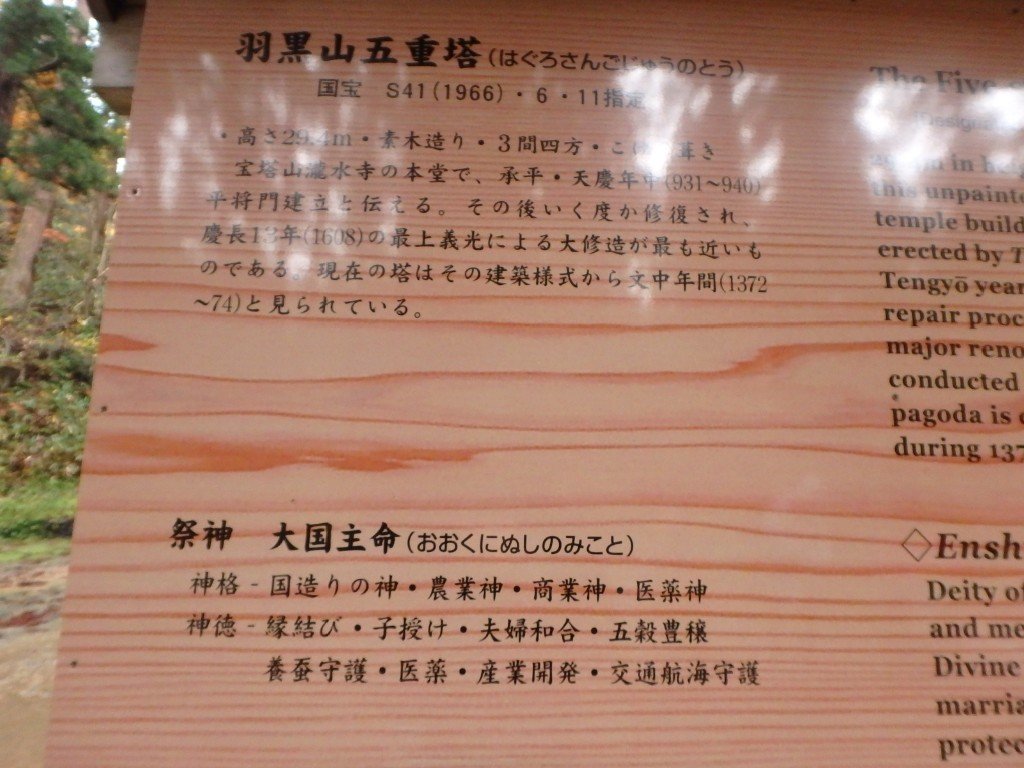 羽黒山五重塔(はぐろさんごじゅうのとう)
国宝 S41(1966)・6・11指定
・高さ29.4m・素木造り・3間四方・こけら葺き
宝塔山瀧水寺の本堂で、承平・天慶年中(931~940)
平将門建立と伝える。その後いく度か修復され、
慶長13年(1608)の最上義光による大修造が最も近いも
のである。現在の塔はその建築様式から文中年間(1372
~74)と見られている。
祭神 大国主命(おおくにぬしのみこと)
神格 - 国造りの神・農業神・商業神・医薬神
神徳 - 縁結び・子授け・夫婦和合・五穀豊穣
養蚕守護・医薬・産業開発・交通航海守護
The Five
in heig
this unpainte
temple build
erected by T
Tengyō year
repair proc
major reno
conducted
pagoda is
during 137
◇Ensh
Deity of
and me
Divine
marria
protec